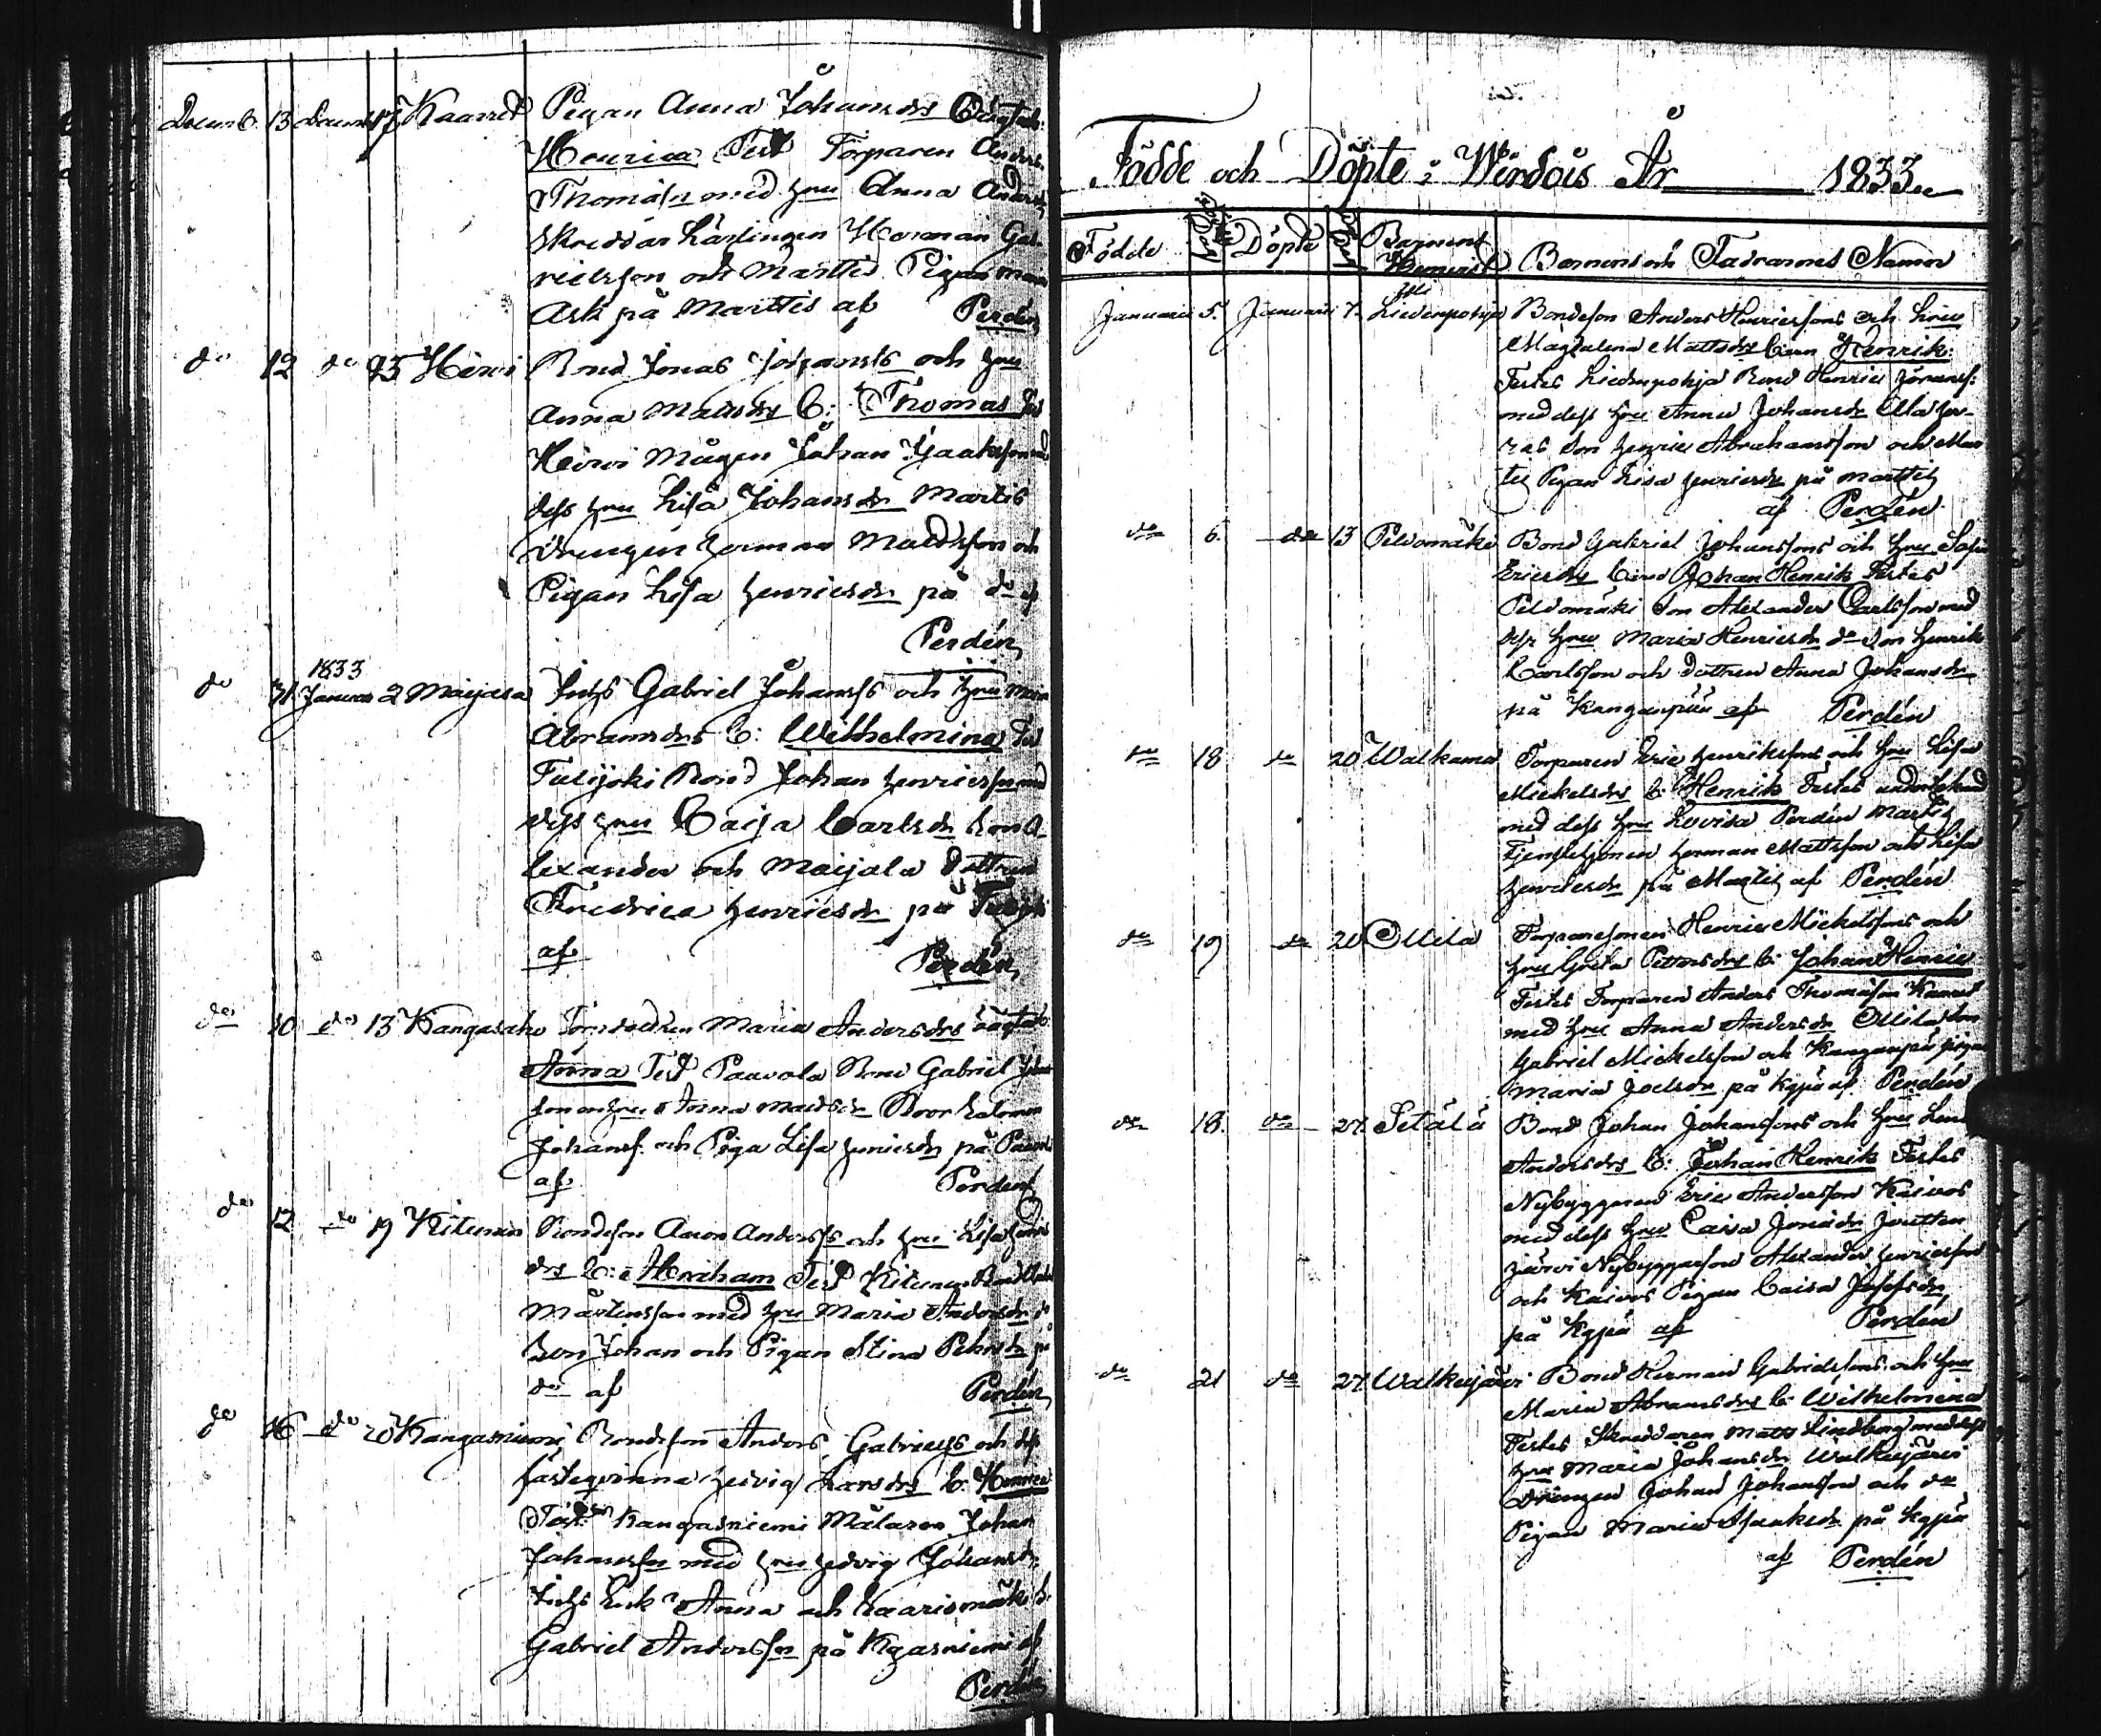 Decemb. 13 Decemb 17 Kaared Pigan Anna Johansdrs Oägta b:
Henrica Test Torparen Anders
Thomass: med hru Anna Andersdr
Skreddar Lärlingen Herman Gab
rielsson och Marttis Pigan Maria
Ask på Marttis af Perdén
do 12 do 25 Hirvi Bond Jonas Johanss och hru
Anna Mattsdrs b: Thomas Test
Hirvi Mågen Johan Isaaksson med
dess hru Lisa Johansdr Martis
drengen Herman Mattsson och
Pigan Lisa Henricsdr på do af
Perdén
1833
do 31 Januar 2 Maijala Inhs Gabriel Johanss och hru Maria
Abramsdrs b: Wilhelmina Test
Tulijoki Bond Johan Henricsson med
dess hru Caisa Carlsdr Son A
lexander och Maijala dottren
Fredrica Henricsdr på
af Perdén
do 10 do 13 Kangasaho Maria Andersdrs oägta b
Anna Test Paavola Bond Gabriel Johans
son hru Anna Mattsdr Bror Salomon
Johanss. och Piga Lisa Henricsdr på Paavola
af Perdén
do 12 do 19 Kitunen Bondeson Aaron Anderss och hru Lisa
drs b: Abraham Test Kitunen Bond
Mårtensson med hru Maria Andersdr do
Son Johan och Pigan Stina Pehrsdr på
do af Perdén
do 16 do 20 Kangasniemi Bondeson Anders Gabrielss och dess
fästeqvinna Hedvig Larsdrs b: Henrica
Test: Kangasniemi Målaren Johan
Johansson med hru Hedvig Johansdr
Inhs Enk Anna och Kaarismäki
Gabriel Andersson på Kgasniemi af
Perdén
Födde och Döpte i Wirdois År 1833
Födde Döpte Barnens Hemvist Barnens och Fadrarnes Namn
Januarii 5. Januarii 7. Liedenpohja Bondeson Anders Henricssons och hru
Magdalena Mattsdrs barn Henrik:
Testes Liedenpohja Bond Henric Göranss:
med dess hru Anna Johansdr
ras Son Henric Abrahamsson och Mar
tis Pigan Lisa Henricsdr på Marttis
af Perdén
do 6. do 13 Peldomäki Bond Gabriel Johanssons och hru Sofia
Ericsdrs barn Johan Henrik Testes
Peldomäki Son Alexander Carlsson med
dess hru Maria Henricsdr do Son Henrik
Carlsson och dottren Anna Johansdr
på Kanganpää af Perdén
do 18 do 20 Walkama Torparen Eric Henrikssons och hru Lisa
Mickelsdrs b: Henrik Testes undertecknad
med dess hru Lovisa Perdén Martis
Tjenstehjonen Herman Mattsson och Lisa
Henricsdr på Martis af Perdén
do 19 do 20 Ollila Torparesonen Henric Mickelssons och
hru Greta Pettersdrs b: Johan Henric
Testes Torparen Anders Thomasson
med hru Anna Andersdr Ollila Son
Gabriel Mickelsson och Kanganpää pigan
Maria Joelsdr på Kgpä af Perdén
do 18. do 27. Setälä Bond Johan Johanssons och hru Lena
Andersdrs b: Johan Henrik Testes
Nybyggaren Eric Andersson Kaivos
med dess hru Caisa Jonasdr Joutten
järvi Nybyggarson Alexander Henricsson
och Kaivos Pigan Caisa Josefsdr
på Kgpä af Perdén
do 21 do 27. Walkeijärvi Bond Herman Gabrielssons och hru
Maria Abramsdrs b: Wilhelmina
Testes Skreddaren Matts Lindberg med dess
hru Maria Johansdr Walkeijärvi
Drängen Johan Johansson och do
Pigan Maria Isaksdr på Kgpä
af Perdén